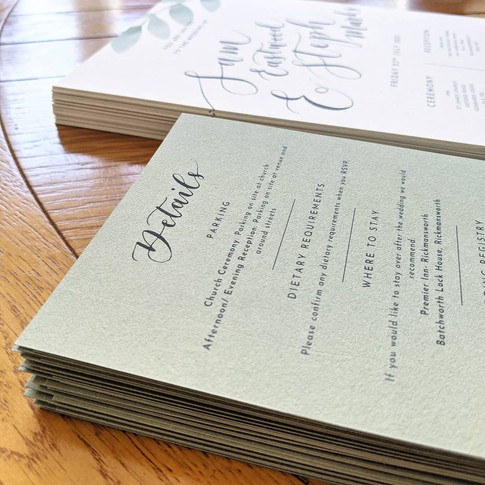 TO THE WEDDING OF
Sam
Eastwood
& Steph
FRIDAY
CEREMONY
RECEPTION
Details
PARKING
Church Ceremony: Parking on site at church
Afternoon/ Evening Reception: Parking on site at venue and
around streets
DIETARY REQUIREMENTS
Please confirm any dietary requirements when you RSVP.
WHERE TO STAY
If you would like to stay over after the wedding we would
recommend:
Premier Inn- Rickmansworth
Batchworth Lock House, Rickmansworth
REGISTRY